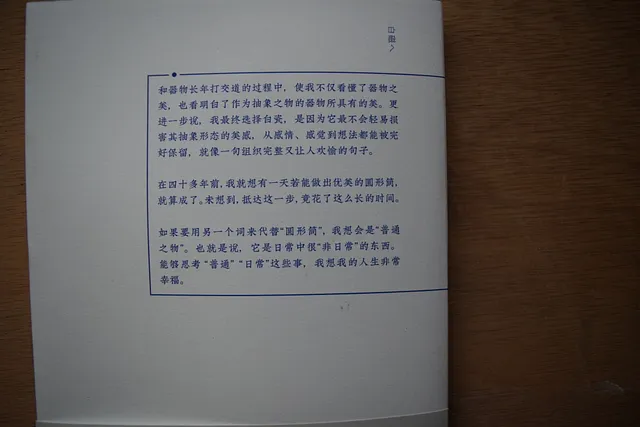 和器物长年打交道的过程中，使我不仅看懂了器物之
美，也看明白了作为抽象之物的器物所具有的美。更
进一步说，我最终选择白瓷，是因为它最不会轻易损
害其抽象形态的美感，从感情、感觉到想法都能被完
好保留，就像一句组织完整又让人欢愉的句子。
在四十多年前，我就想有一天若能做出优美的圆形筒，
就算成了。未想到，抵达这一步，竟花了这么长的时间。
如果要用另一个词来代替“圆形筒”，我想会是“普通
之物”。也就是说，它是日常中很“非日常”的东西。
能够思考“普通”“日常”这些事，我想我的人生非常
幸福。